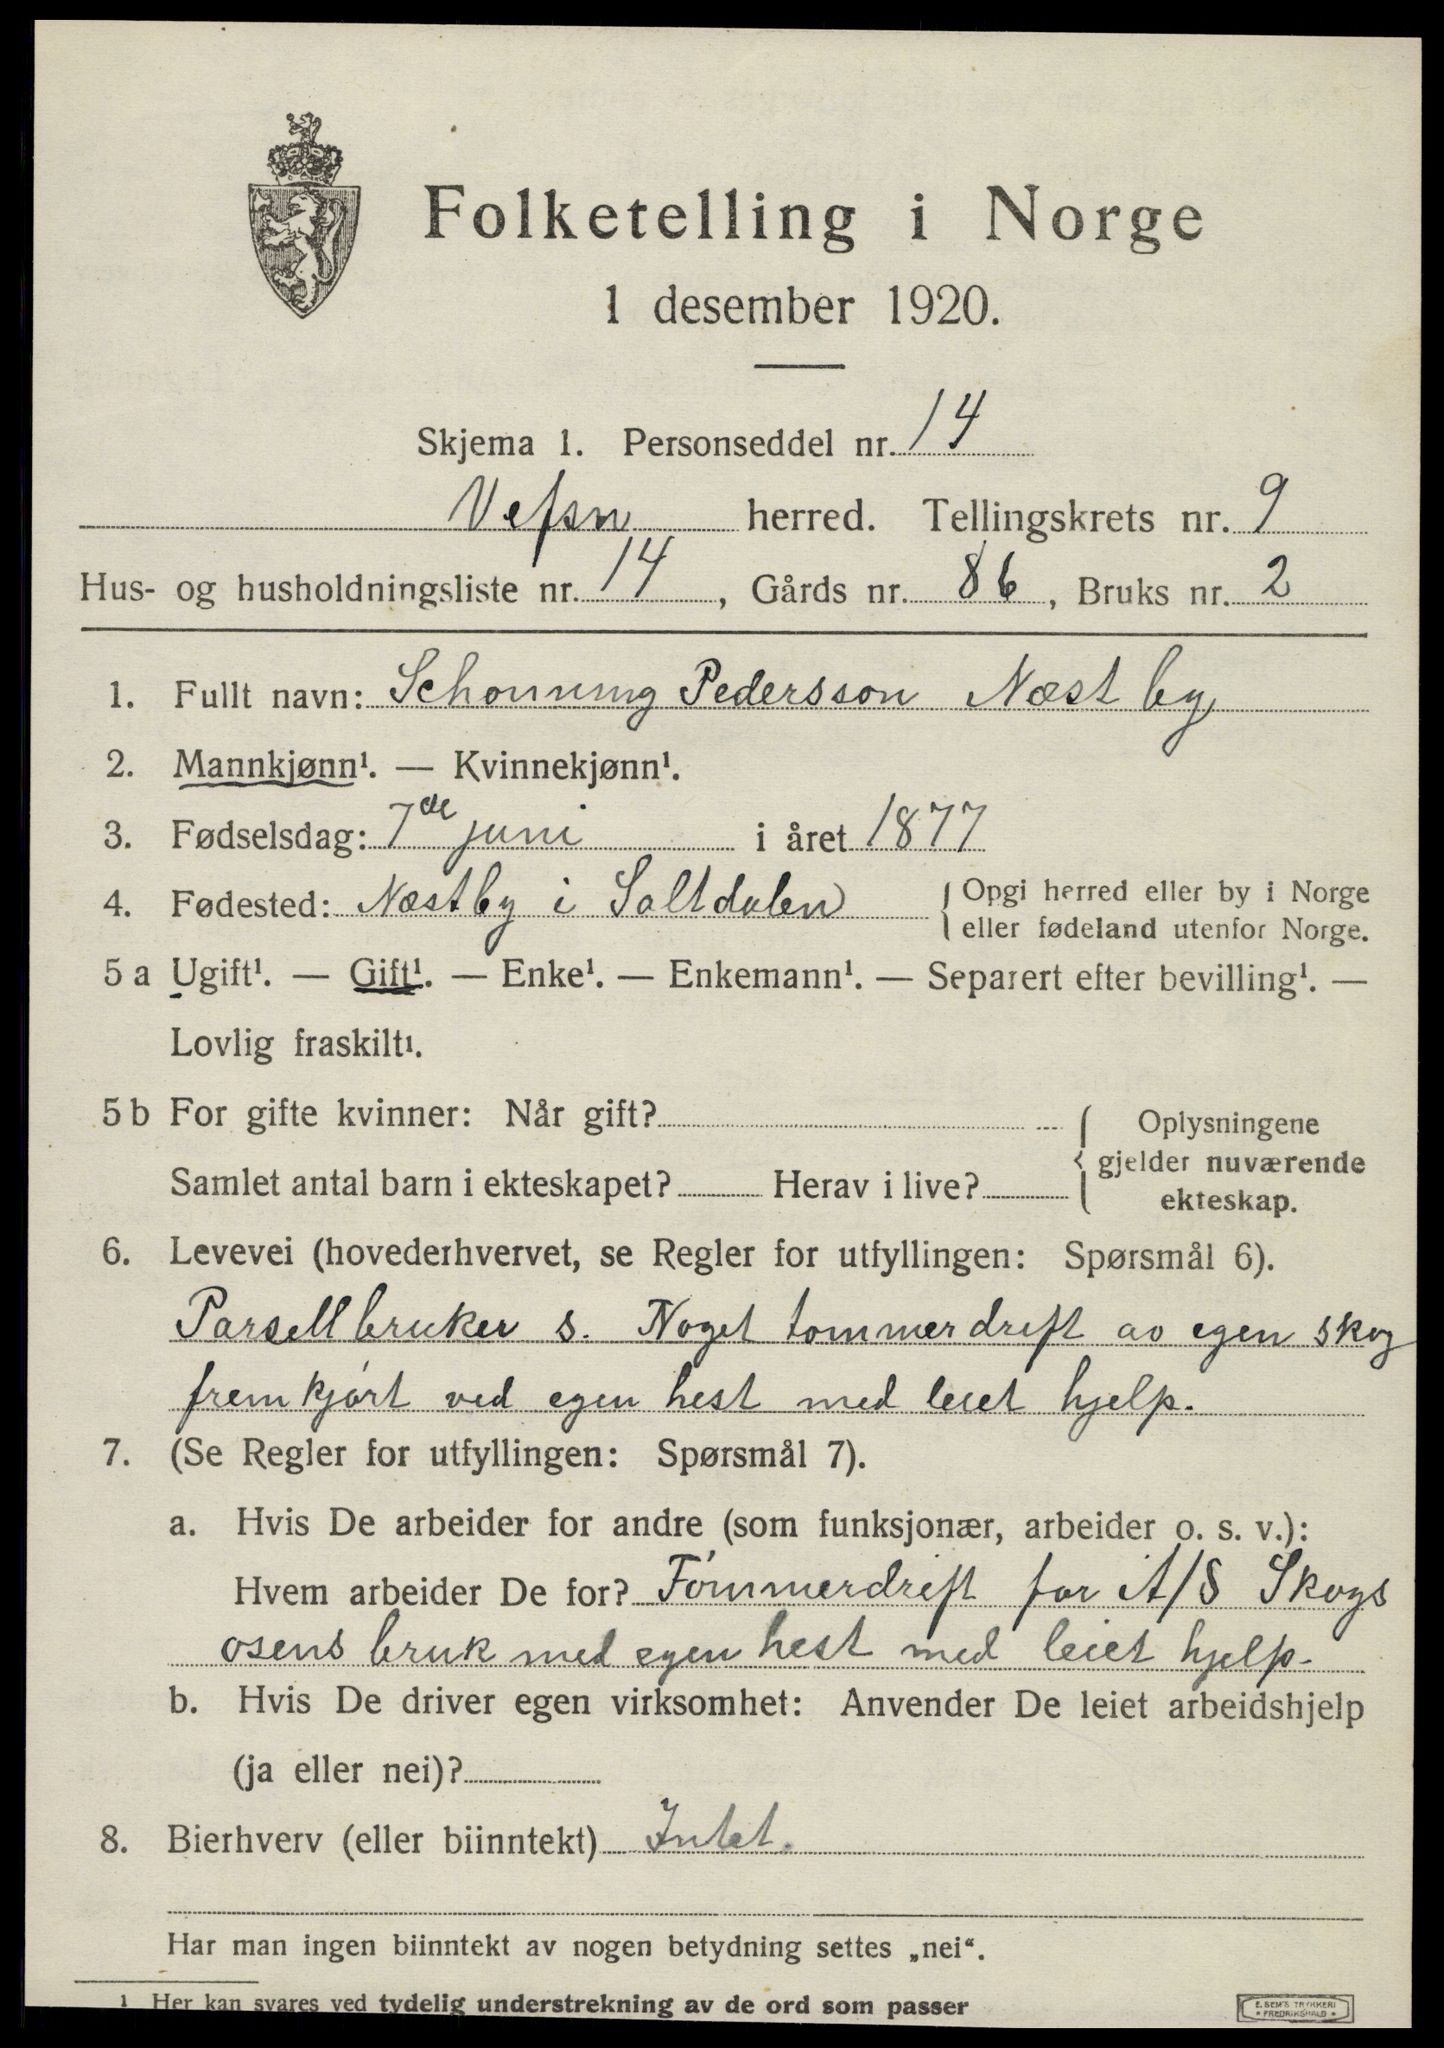 Folketelling i Norge
1 desember 1920.
Skjema 1. Personseddel nr. 14
Vefsn herred. Tellingskrets nr. 9
Hus- og husholdningsliste nr. 14, Gårds nr. 86, Bruks nr. 2
1. Fullt navn: Schonning Pedersson Næstby
2. Mannkjønn¹. — Kvinnekjønn¹.
3. Fødselsdag: 7de juni i året 1877
4. Fødested: Næstby i Saltdalen { Opgi herred eller by i Norge
eller fødeland utenfor Norge.
5 a Ugift¹. — Gift¹. — Enke¹. — Enkemann¹. — Separert efter bevilling¹. —
Lovlig fraskilt¹.
5 b For gifte kvinner: Når gift? { Oplysningene
gjelder nuværende
Samlet antal barn i ekteskapet? Herav i live?
ekteskap.
6. Levevei (hovederhvervet, se Regler for utfyllingen: Spørsmål 6).
Parsellbruker s. Noget tømmerdrift av egen skog
fremkjørt ved egen hest med leiet hjelp.
7. (Se Regler for utfyllingen: Spørsmål 7).
a. Hvis De arbeider for andre (som funksjonær, arbeider o. s. v.):
Hvem arbeider De for? Tømmerdrift for A/S Skogs
osens bruk med egen hest med leiet hjelp.
b. Hvis De driver egen virksomhet: Anvender De leiet arbeidshjelp
(ja eller nei)?
8. Bierhverv (eller biinntekt) Intet.
Har man ingen biinntekt av nogen betydning settes „nei“.
¹ Her kan svares ved tydelig understrekning av de ord som passer
E. SEM'S TRYKKERI
* FREDRIKSHALD *